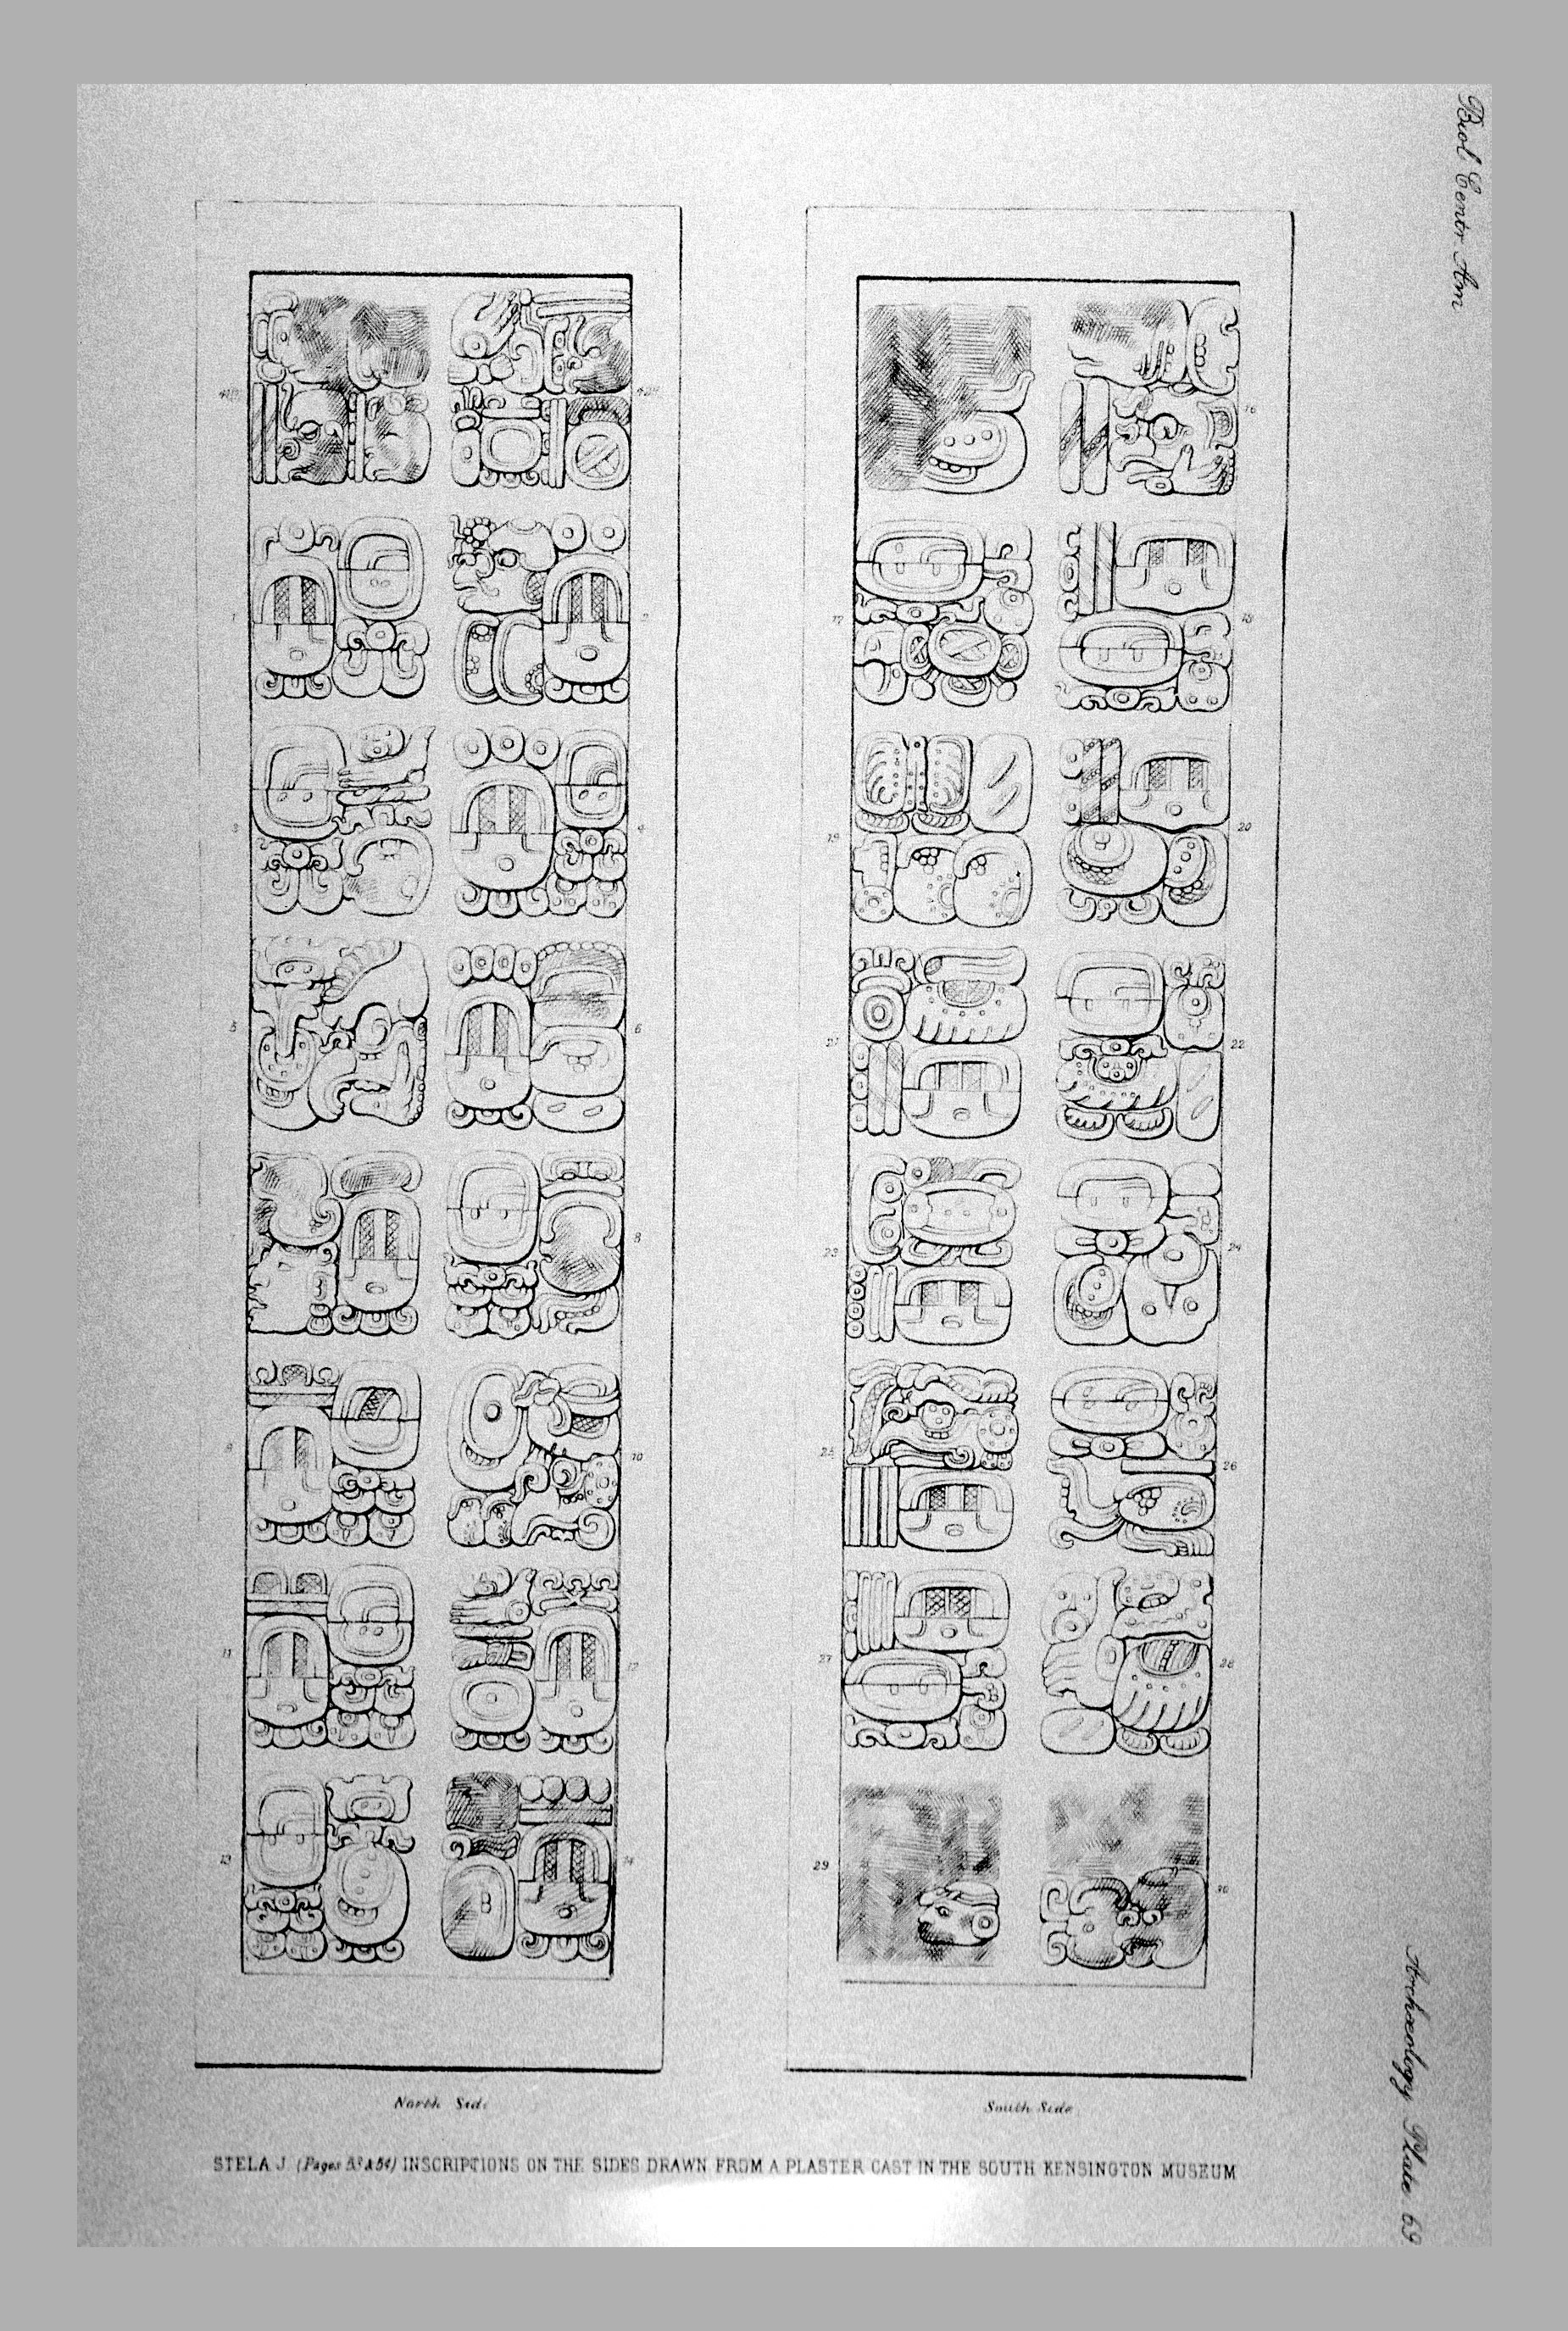 Biol. Centr. Am.
16
1
2
17
18
3
4
19
20
5
6
21
22
7
8
23
24
9
10
25
26
11
12
27
28
13
14
29
30
North Side
South Side
STELA J (Pages INSCRIPTIONS ON THE SIDES DRAWN FROM A PLASTER CAST IN THE SOUTH KENSINGTON MUSEUM
Archæology Plate 69